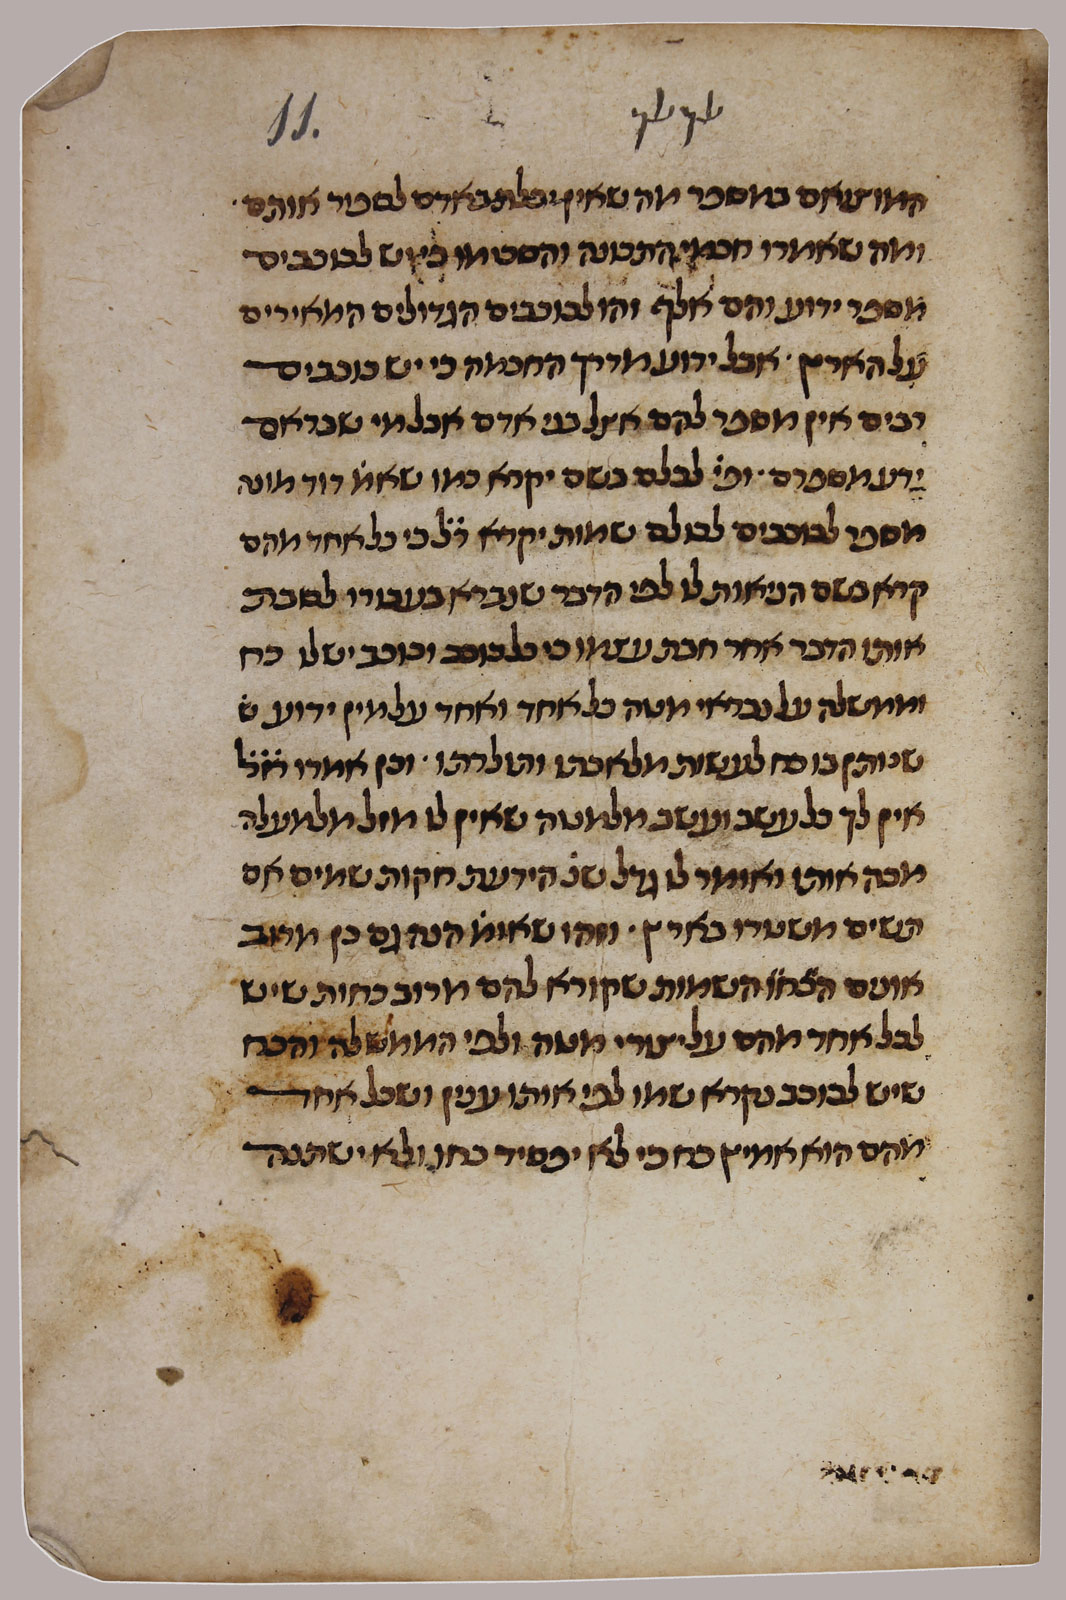 11.
המוצאם במספר מה שאין יכלת באדם לספור אותם
ומה שאמרו חכמי התכונה והסכימו כי יש לכוכבים
מספר ידוע והם אלף זהו לכוכבים הגדולים המאירים
על הארץ · אבל ידוע מדרך החכמה כי יש כוכבים
רבים אין מספר להם אצל בני אדם אבל מי שבראם
ידע מספרם · וכי׳ לכלם בשם יקרא כמו שאמ׳ דוד מונה
מספר לכוכבים לכולם שמות יקרא ר״ל כי כל אחד מהם
קרא בשם הניאות לו לפי הדבר שנברא בעבורו לסבת
אותו הדבר אחר חבת עצמו כי כל כוכב וכוכב יש לו כח
וממשלה על נבראי מטה כל אחד ואחד על מין ידוע ש
שניתן בו כח לעשות מלאכתו ותולדתו · וכן אמרו רז״ל
אין לך כל עשב ועשב מלמטה שאין לו מזל מלמעלה
מכה אותו ואומר לו גדל שנ׳ הידעת חקות שמים אם
תשים משטרו בארץ · וזהו שאומ׳ הנה גם כן מרוב
אונים השמות שקורא להם מרוב כחות שיש
לכל אחד מהם על יצורי מטה ולפי הממשלה והכח
שיש לכוכב נקרא שמו לפי אותו ענין ושכל אחד
מהם הוא אמיץ כח כי לא יפסיד כחו ולא ישתנה